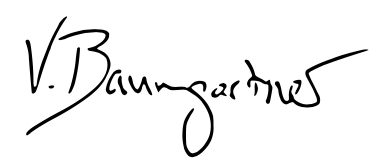 V. Baumgartner